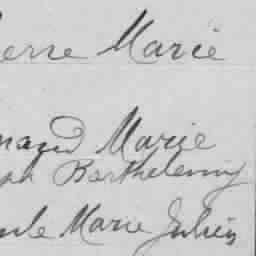 ierre Marie
nand Marie
eph Barthelemy
ule Marie Julien